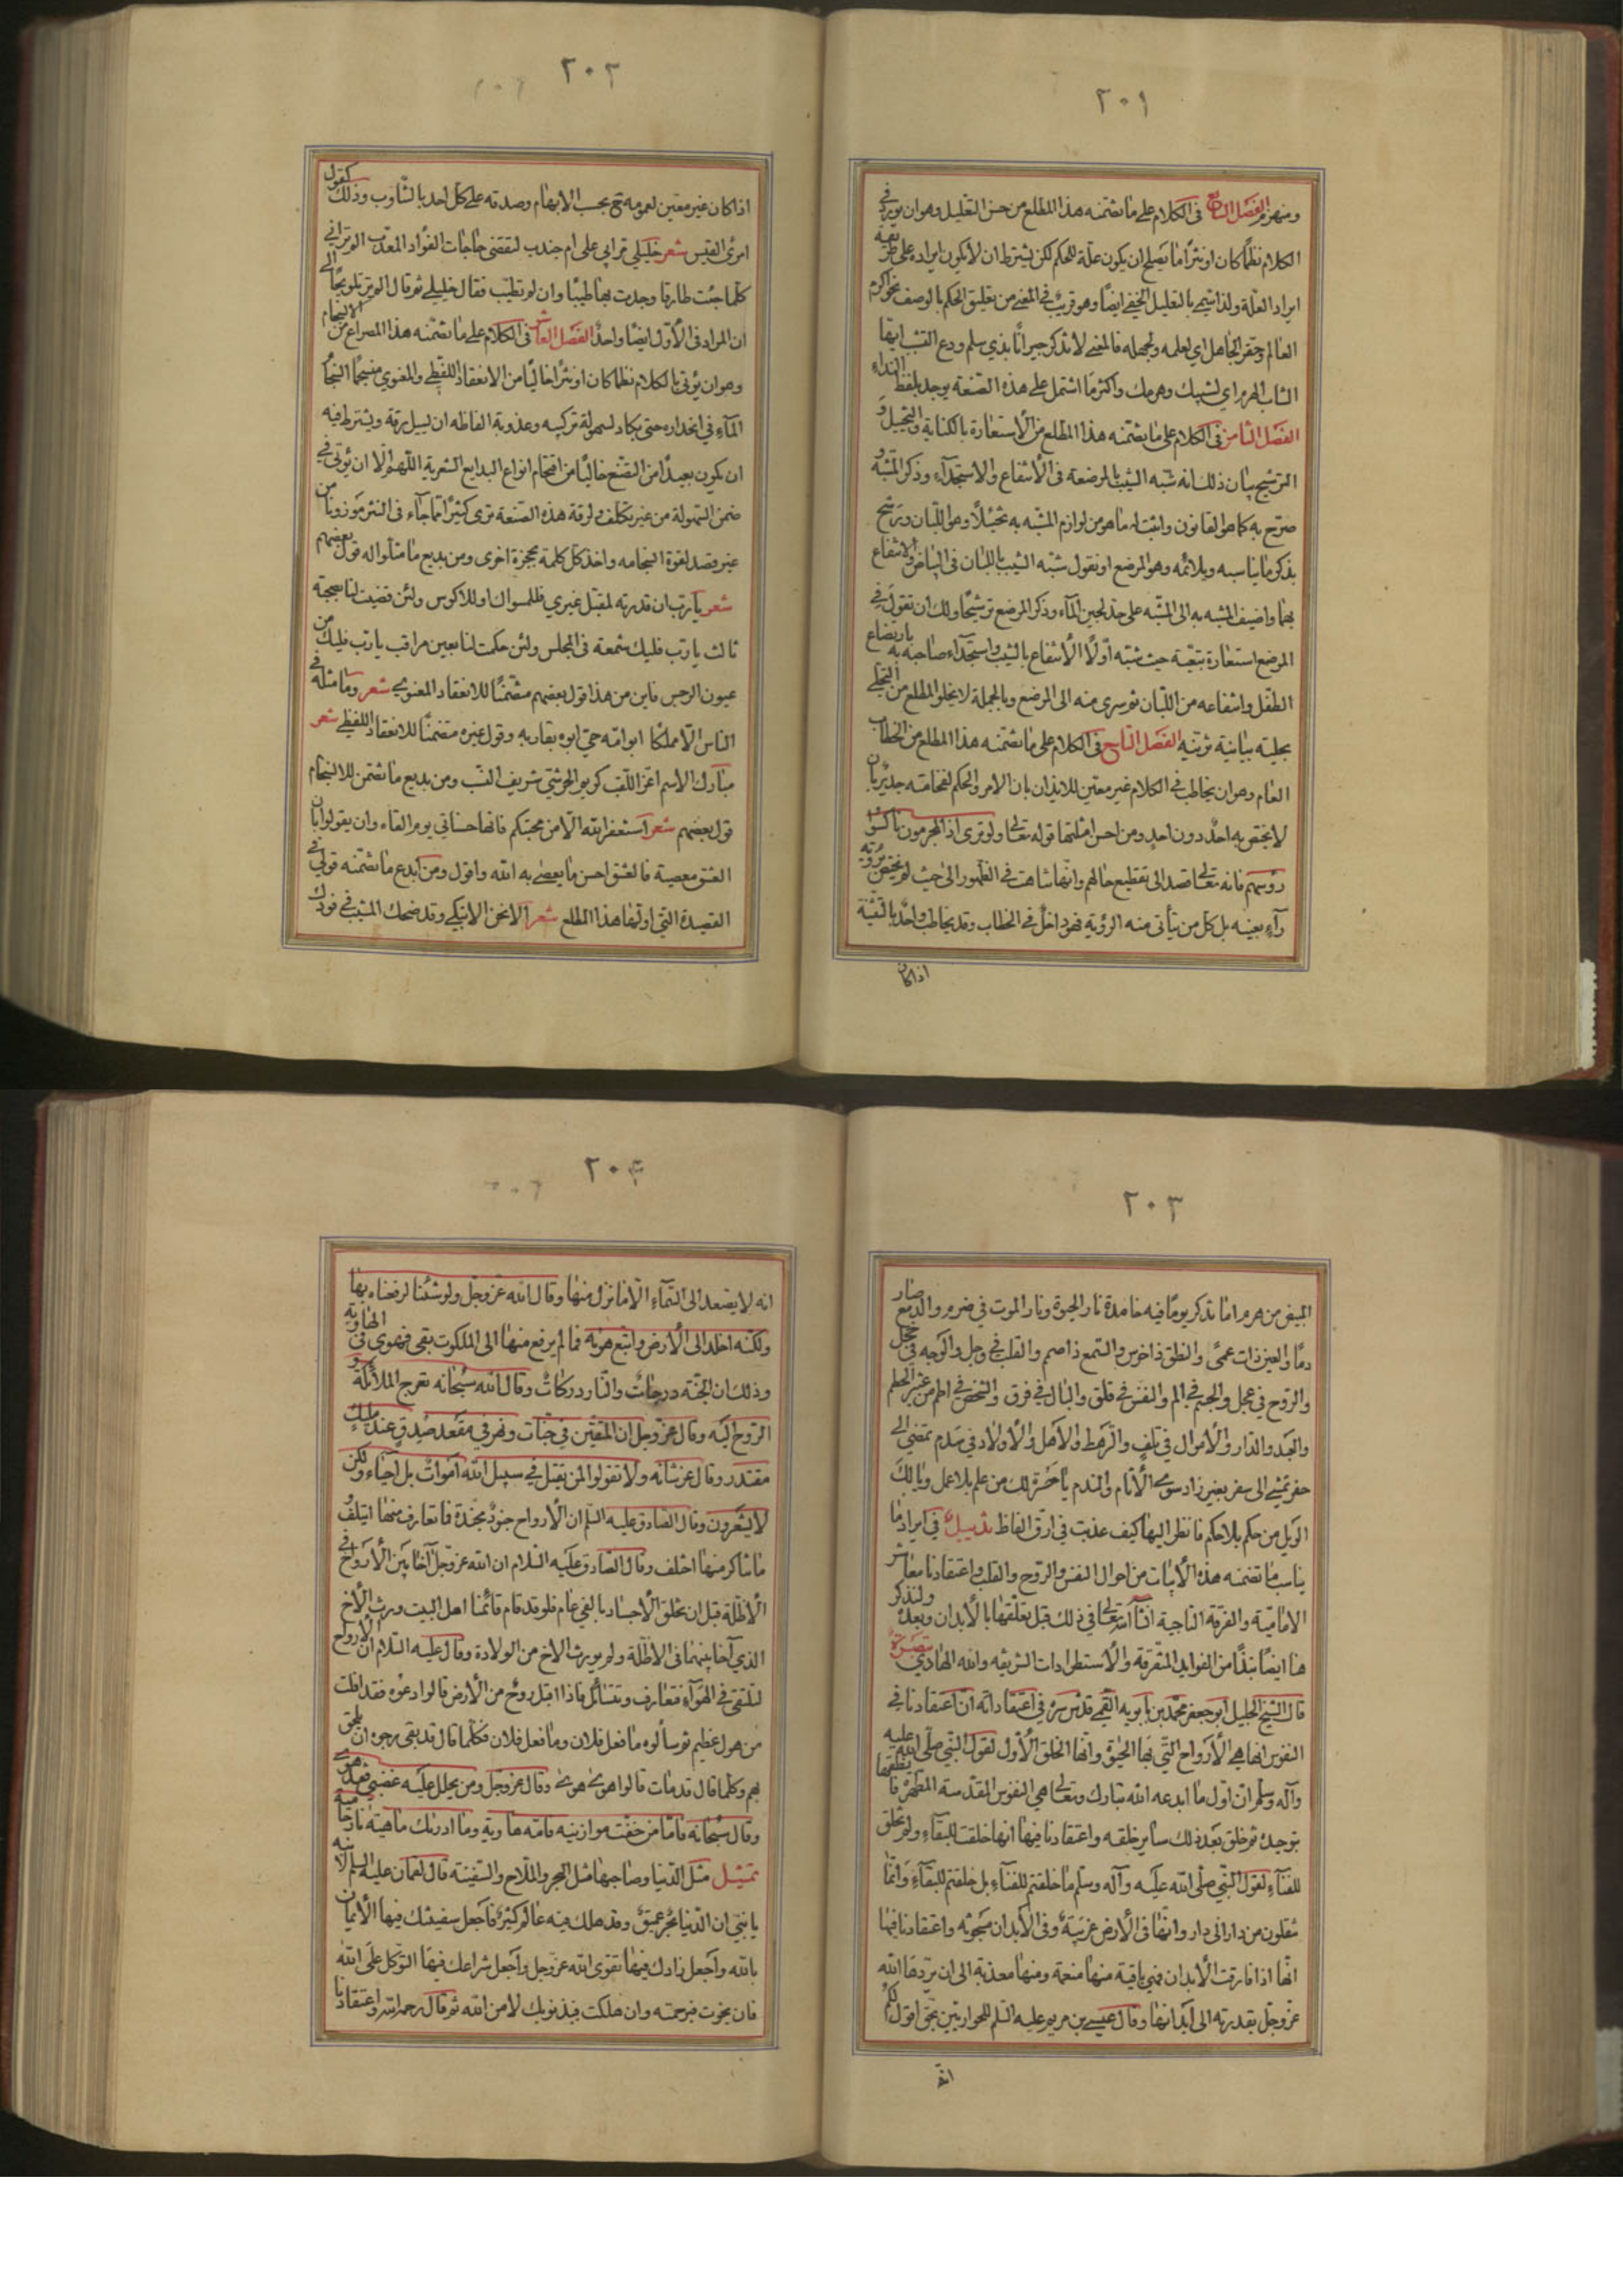 ٢٠١
ومنهرم الفصل السابع في الكلام على ما يتضمنه هذا المطلع من حسن التعليل وهو ان يورد في
الكلام نظما كان او نثرا ما يصلح ان يكون علة للحكم لكن يشترط ان لا يكون ايراده على طريقة
ايراد العلة ولذا تسمى بالتعليل الخفي ايضا وهو قريب في المعنى من تعليق الحكم بالوصف نحو اكرم
العالم وحقر الجاهل اي لعلمه ولجهله فالمعنى لا تذكر جيرانا بذي سلم ودع التشبب ايها
الشاب الهرم اي لشيبك وهرمك واكثر ما اشتمل على هذه الصنعة يوجد بلفظ النداء
الفصل الثامن في الكلام على ما يتضمنه هذا المطلع من الاستعارة بالكناية والتخييل و
الترشيح بيان ذلك انه شبه الشيب بالمرضعة في الانتفاع والاستجداء وذكر المشبه و
صرح به كما هو القانون واثبت له ما هو من لوازم المشبه به تخييلا وهو اللبان ورشح
بذكر ما يناسبه ويلائمه وهو المرضع او نقول شبه الشيب باللبان في البياض والانتفاع
بهما واضيف المشبه به الى المشبه على حد لجين الماء وذكر المرضع ترشيحا ولك ان تقول في
المرضع استعارة تبعية حيث شبه اولا الانتفاع بالشيب واستجداء صاحبه به بارتضاع
الطفل وانتفاعه من اللبان ثم سرى منه الى المرضع وبالجملة لا يخلو المطلع من التحلي
بحلية بيانية تزينه الفصل التاسع في الكلام على ما يتضمنه هذا المطلع من الخطاب
العام وهو ان يخاطب في الكلام غير معين للايذان بان الامر والحكم لفخامته جدير بان
لا يختص به احد دون احد ومن احسن امثلتها قوله تعالى ولو ترى اذ المجرمون ناكسوا
رؤسهم فانه تعالى قصد الى تفظيع حالهم وانها تناهت في الظهور الى حيث لم يختص برؤية
راء بعينه بل كل من يتأتى منه الرؤية فهو داخل في الخطاب وقد يخاطب واحد بالتثنية
اذا كان
٢٠٢
اذا كان غير معين لعمومه ح بحسب الابهام وصدقه على كل احد بالتناوب وذلك كقول
امرئ القيس شعر خليلي مرا بي على ام جندب لنقضي حاجات الفؤاد المعذب الم تر اني
كلما جئت طارقا وجدت بها طيبا وان لم تطيب فقال خليلي ثم قال الم تر تلويحا الى
ان المراد في الاول ايضا واحد الفصل العاشر في الكلام على ما يتضمنه هذا المصراع من الانسجام
وهو ان يؤتى بالكلام نظما كان او نثرا خاليا من الانعقاد اللفظي والمعنوي منسجما انسجام
الماء في انحداره حتى يكاد لسهولة تركيبه وعذوبة الفاظه ان يسيل رقة ويشترط فيه
ان يكون بعيدا من التصنع خاليا من اقحام انواع البدايع الشعرية اللهم الا ان يؤتى في
ضمن السهولة من غير تكلف ولرقة هذه الصنعة ترى كثيرا مما جاء في النثر موزونا من
غير قصد لقوة انسجامه واخذ كل كلمة بحجزة اخرى ومن بديع ما مثلوا له قول بعضهم
شعر يا رب ان قدرته لمقبل غيري فللمسواك او للاكوس ولئن قضيت لنا بصحبة
ثالث يا رب فليك شمعة في المجلس ولئن حكمت لنا بعين مراقب يا رب فليك من
عيون النرجس فاين من هذا قول بعضهم متضمنا للانعقاد المعنوي شعر وما مثله في
الناس الا مملكا ابو امه حي ابوه يقاربه وقول غيره متضمنا للانعقاد اللفظي شعر
مبارك الاسم اغر اللقب كريم الجرشى شريف النسب ومن بديع ما يتضمن للانسجام
قول بعضهم شعر استغفر الله الا من محبتكم فانها حسناتي يوم القاء وان يقولوا بان
العشق معصية فالعشق احسن ما يعصى به الله واقول ومن ابدع ما يتضمنه قولي في
القصيدة التي اولها هذا المطلع شعر الا نحن الا تبكي وقد ضحك المشيب في فودك
٢٠٣
المبيض من هرم اما تذكر يوما فيه خامدة نار الحيوة ونار الموت في ضرم والدمع صار
دما والعين ذات عمى والنطق ذا خرس والسمع ذا صمم والقلب في وجل والوجه في خجل
والروح في عجل والجسم في الم والنفس في قلق والبال في فرق والشخص في اطم من
والجد والدار والاموال في تلف والرهط والاهل والاولاد في سدم تمضي الى
حفر تمشي الى سفر بغير زاد سوى الاثام والندم يا حسرة لك من علم بلا عمل ويا لك
الويل من حكم بلا حكم فانظر اليها كيف عذبت في ارق الفاظ تذييل في ايراد ما
يناسب ما تضمنه هذه الابيات من احوال النفس والروح والقلب واعتقادنا معاشر
الامامية والفرقة الناجية انشأ الله تعالى في ذلك قبل تعلقها بالابدان وبعده ولنذكر
هنا ايضا نبذا من الفوايد المتفرقة والاستطرادات الشريفة والله الهادي تبصرة
قال الشيخ الجليل ابو جعفر محمد بن بابويه القمي قدس سره في اعتقاداته ان اعتقادنا في
النفوس انها هي الارواح التي بها الحيوة وانها الخلق الاول لقول النبي صلى الله عليه
وآله وسلم ان اول ما ابدعه الله تبارك وتعالى هي النفوس المقدسة المطهرة فانطقها
بتوحيده ثم خلق بعد ذلك ساير خلقه واعتقادنا فيها انها خلقت للبقاء ولم تخلق
للفناء لقول النبي صلى الله عليه وآله وسلم ما خلقتم للفناء بل خلقتم للبقاء وانما
تنقلون من دار الى دار وانها في الارض غريبة وفي الابدان مسجونة واعتقادنا فيها
انها اذا فارقت الابدان فهي باقية منها منعمة ومنها معذبة الى ان يردها الله
عز وجل بقدرته الى ابدانها وقال عيسى بن مريم عليه السلم للحواريين بحق اقول لكم
انه
٢٠٤
انه لا يصعد الى السماء الا ما نزل منها وقال الله عز وجل ولو شئنا لرفعناه بها
ولكنه اخلد الى الارض واتبع هويه فما لم يرفع منها الى الملكوت بقي فهوى في الهاوية
وذلك ان الجنة درجات والنار دركات وقال الله سبحانه تعرج الملائكة و
الروح اليه وقال عز وجل ان المتقين في جنات ونهر في مقعد صدق عند مليك
مقتدر وقال عز شانه ولا تقولوا لمن يقتل في سبيل الله اموات بل احياء ولكن
لا يشعرون وقال الصادق عليه السلم ان الارواح جنود مجندة فما تعارف منها ايتلف و
ما تناكر منها اختلف وقال الصادق عليه السلام ان الله عز وجل آخا بين الارواح في
الاظلة قبل ان يخلق الاجساد بالفي عام فلو قد قام قائمنا اهل البيت ورث الاخ
الذي آخا بينهما في الاظلة ولم يورث الاخ من الولادة وقال عليه السلام ان الارواح
لتلتقي في الهواء فتعارف وتتسائل فاذا اقبل روح من الارض قالوا دعوه فقد افلت
من هول عظيم ثم سألوه ما فعل فلان وما فعل فلان فكلما قال قد بقي رجوه ان يلحق
بهم وكلما قال قد مات قالوا هوى هوى وقال عز وجل ومن يحلل عليه غضبي فقد هوى
وقال سبحانه فاما من خفت موازينه فامه هاوية وما ادريك ماهيه نار حامية
تمثيل مثل الدنيا وصاحبها مثل البحر والملاح والسفينة قال لقمان عليه السلم لابنه
يا بني ان الدنيا بحر عميق وقد هلك فيه عالم كثير فاجعل سفينتك فيها الايمان
بالله واجعل زادك فيها تقوى الله عز وجل واجعل شراعك فيها التوكل على الله
فان نجوت فبرحمته وان هلكت فبذنوبك لا من الله ثم قال رحمه الله واعتقادنا